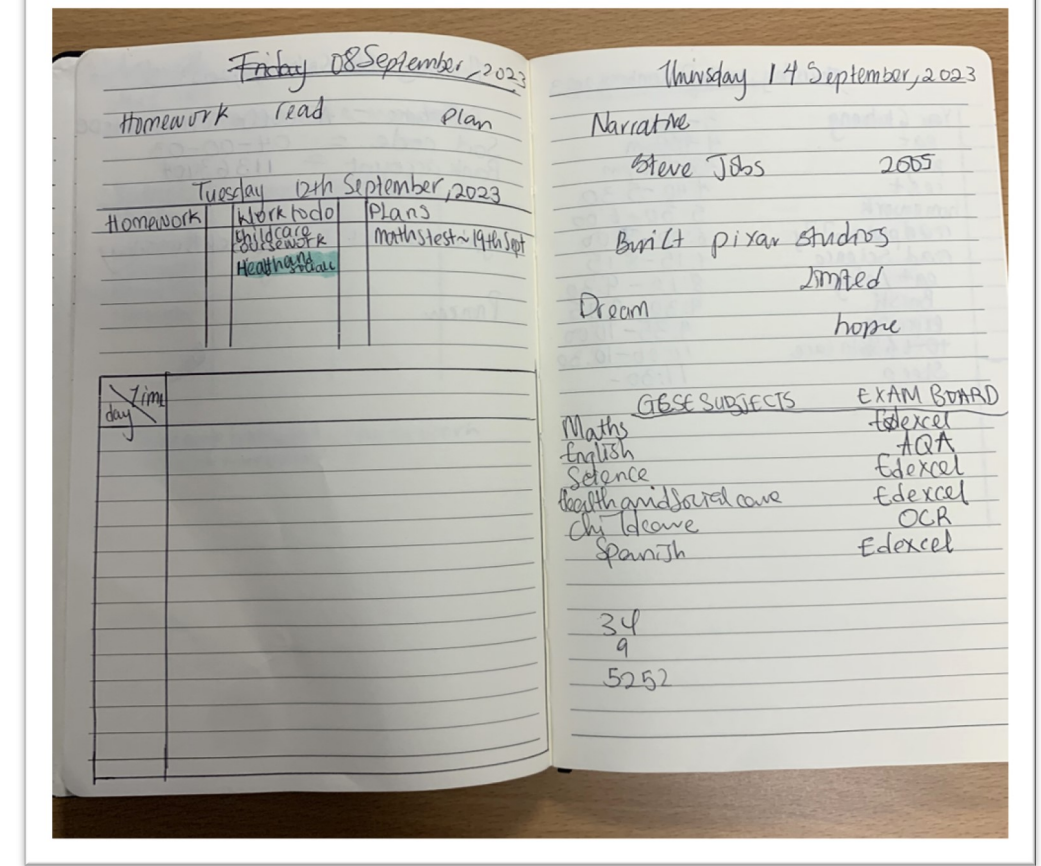 Friday 08 September, 2023
Homework read Plan
Tuesday 12th September, 2023
Homework Work to do Plans
Childcare Maths test ~ 19th Sept
oursework
Health and social
Time
day
Thursday 14 September, 2023
Narrative
Steve Jobs 2005
Built pixar studios
Limited
Dream
GCSE SUBJECTS EXAM BOARD
Maths Edexcel
English AQA
Science Edexcel
Health and Social care Edexcel
Childcare OCR
Spanish Edexcel
34
9
5252